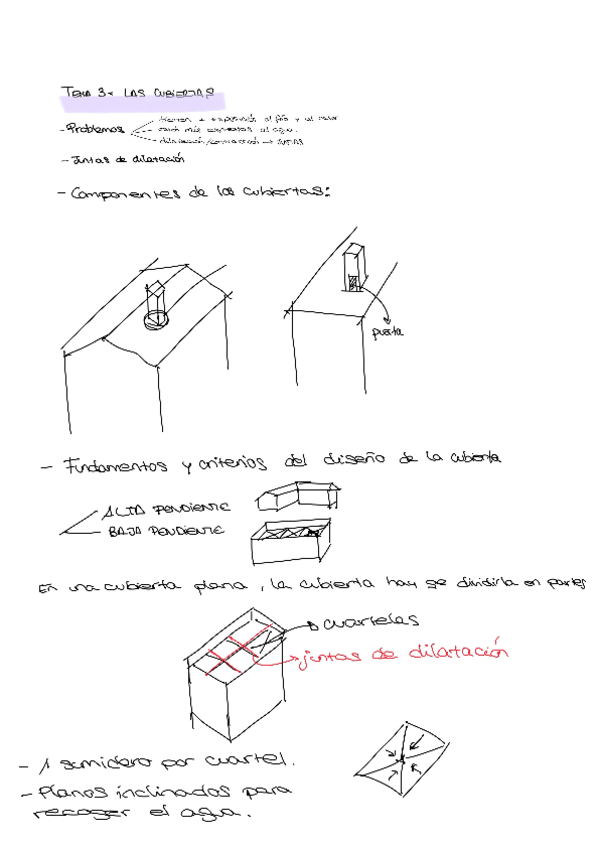 TEMA 3. LAS CUBIERTAS
- Problemas
tienen + exposición al frío y al calor
están más expuestas al agua.
dilatación/contracción → juntas
- Juntas de dilatación
- Componentes de las cubiertas:
puerta
- Fundamentos y criterios del diseño de la cubierta
ALTA PENDIENTE
BAJA PENDIENTE
En una cubierta plana, la cubierta hay se dividirla en partes
cuarteles
juntas de dilatación
- 1 sumidero por cuartel.
- Planos inclinados para
recoger el agua.